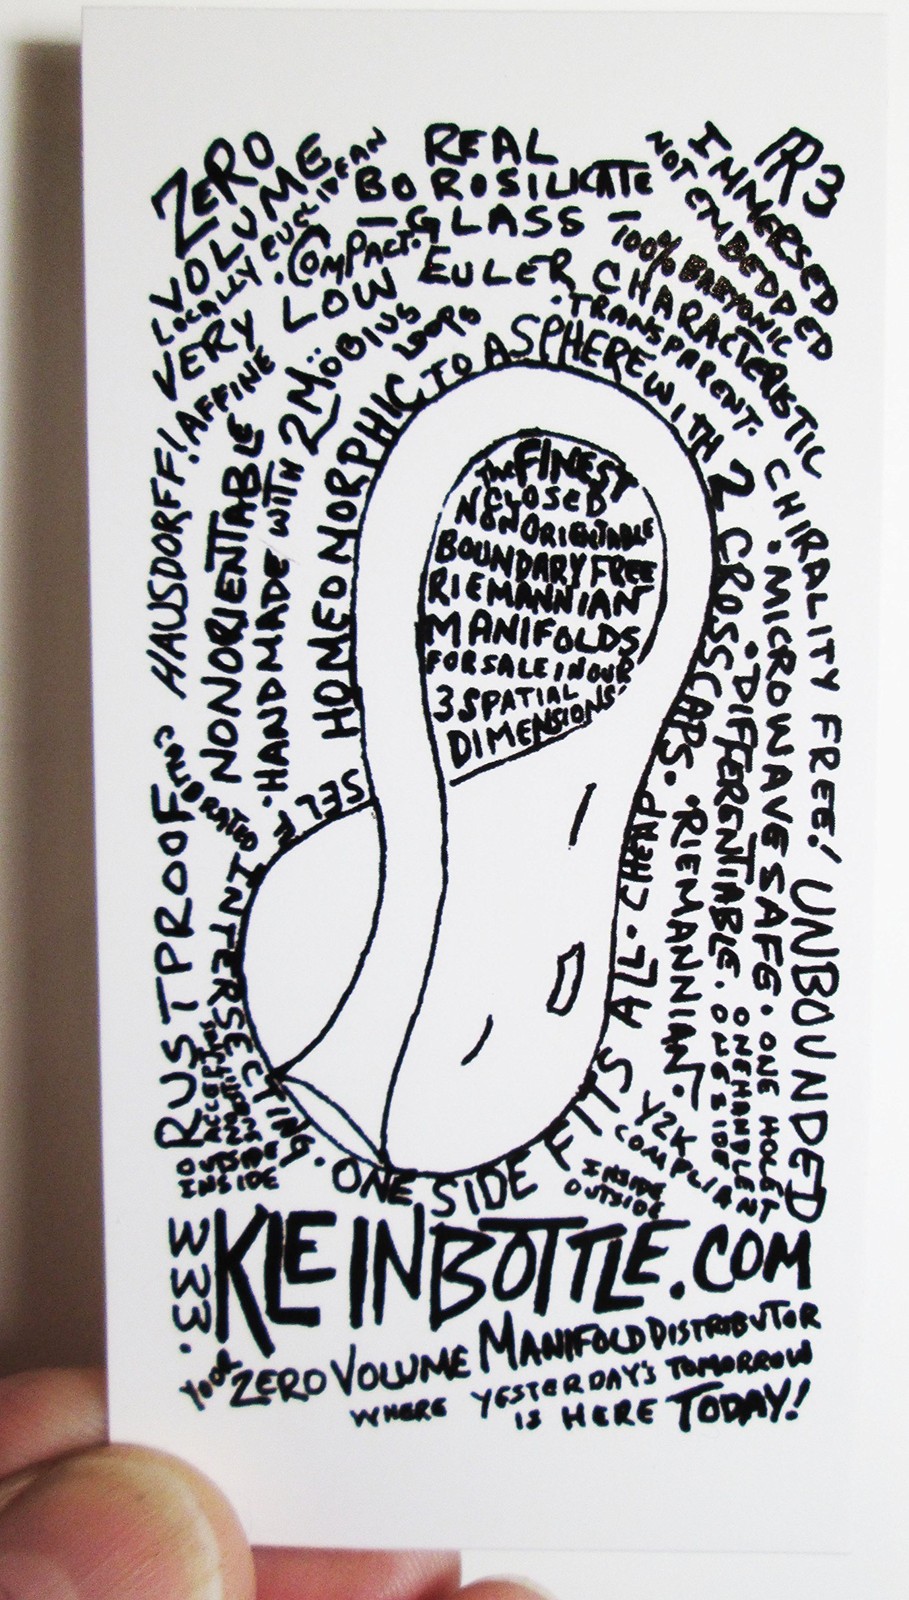 ZERO
VOLUME
LOCALLY EUCLIDEAN
·COMPACT·
REAL
BOROSILICATE
—GLASS—
ℝ3
IMMERSED
NOT EMBEDDED
100% BARYONIC
·TRANSPARENT.
VERY LOW EULER CHARACTERISTIC
HAUSDORFF! AFFINE
NONORIENTABLE
·HANDMADE WITH 2 MÖBIUS LOOPS
HOMEOMORPHIC TO A SPHERE WITH 2 CROSSCAPS.
CHIRALITY FREE! UNBOUNDED
·MICROWAVE SAFE. ONE HOLE!
·DIFFERENTIABLE. ONE SIDE!
ONE HANDLE!
·RIEMANNIAN·
the FINEST
CLOSED
NONORIENTABLE
BOUNDARY FREE
RIEMANNIAN
MANIFOLDS
FOR SALE IN OUR
3 SPATIAL
DIMENSIONS
RUSTPROOF
SELF INTERSECTING.
ONE SIDE FITS ALL. CHEAP!
Y2K
COMPLIANT
OUTSIDE
INSIDE
INSIDE
OUTSIDE
WWW.
KLEINBOTTLE.COM
YOUR ZERO VOLUME MANIFOLD DISTRIBUTOR
WHERE YESTERDAY'S TOMORROW
IS HERE TODAY!